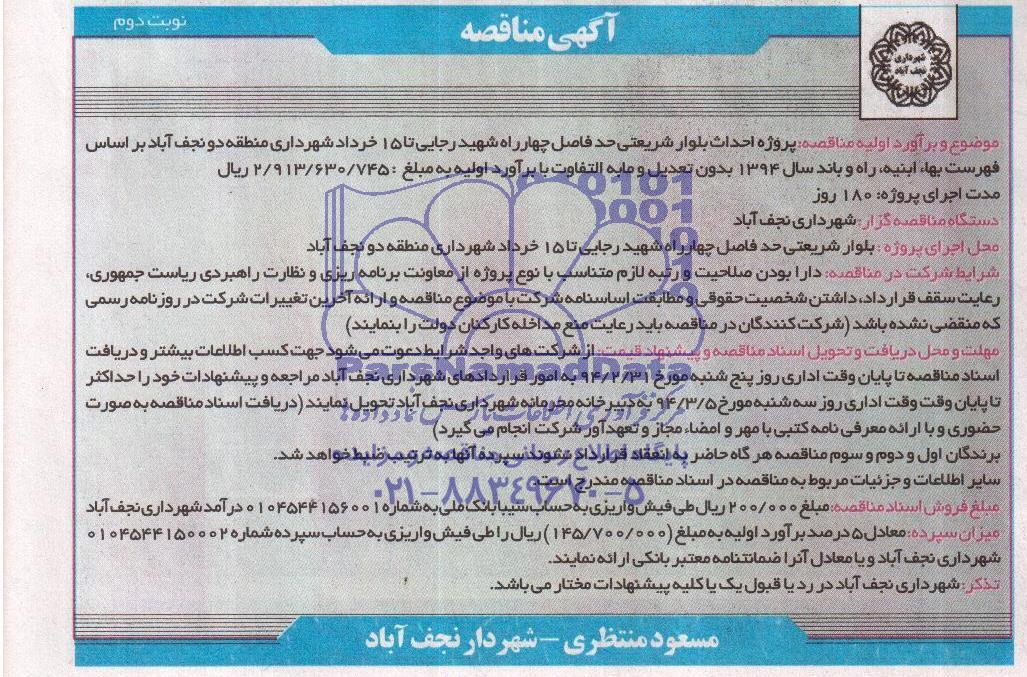 نوبت دوم
آگهی مناقصه
شهرداری
نجف آباد
موضوع و برآورد اولیه مناقصه: پروژه احداث بلوار شریعتی حد فاصل چهارراه شهید رجایی تا ۱۵ خرداد شهرداری منطقه دو نجف آباد بر اساس
فهرست بهاء ابنیه، راه و باند سال ۱۳۹۴ بدون تعدیل و مابه التفاوت با برآورد اولیه به مبلغ : ۲/۹۱۳/۶۳۰/۷۴۵ ریال
مدت اجرای پروژه: ۱۸۰ روز
دستگاه مناقصه گزار: شهرداری نجف آباد
محل اجرای پروژه : بلوار شریعتی حد فاصل چهارراه شهید رجایی تا ۱۵ خرداد شهرداری منطقه دو نجف آباد
شرایط شرکت در مناقصه: دارا بودن صلاحیت و رتبه لازم متناسب با نوع پروژه از معاونت برنامه ریزی و نظارت راهبردی ریاست جمهوری،
رعایت سقف قرارداد، داشتن شخصیت حقوقی و مطابقت اساسنامه شرکت با موضوع مناقصه و ارائه آخرین تغییرات شرکت در روزنامه رسمی
که منقضی نشده باشد (شرکت کنندگان در مناقصه باید رعایت منع مداخله کارکنان دولت را بنمایند)
مهلت و محل دریافت و تحویل اسناد مناقصه و پیشنهاد قیمت: از شرکت های واجد شرایط دعوت می شود جهت کسب اطلاعات بیشتر و دریافت
اسناد مناقصه تا پایان وقت اداری روز پنج شنبه مورخ ۹۴/۲/۳۱ به امور قراردادهای شهرداری نجف آباد مراجعه و پیشنهادات خود را حداکثر
تا پایان وقت وقت اداری روز سه شنبه مورخ ۹۴/۳/۵ به دبیرخانه محرمانه شهرداری نجف آباد تحویل نمایند (دریافت اسناد مناقصه به صورت
حضوری و با ارائه معرفی نامه کتبی با مهر و امضاء مجاز و تعهدآور شرکت انجام می گیرد)
برندگان اول و دوم و سوم مناقصه هر گاه حاضر به انعقاد قرارداد نشوند سپرده آنها به ترتیب ضبط خواهد شد.
سایر اطلاعات و جزئیات مربوط به مناقصه در اسناد مناقصه مندرج است.
مبلغ فروش اسناد مناقصه: مبلغ ۲۰۰/۰۰۰ ریال طی فیش واریزی به حساب سیبا بانک ملی به شماره ۰۱۰۴۵۴۴۱۵۶۰۰۱ درآمد شهرداری نجف آباد
میزان سپرده: معادل ۵ درصد برآورد اولیه به مبلغ (۱۴۵/۷۰۰/۰۰۰) ریال را طی فیش واریزی به حساب سپرده شماره ۰۱۰۴۵۴۴۱۵۰۰۰۲
شهرداری نجف آباد و یا معادل آنرا ضمانتنامه معتبر بانکی ارائه نمایند.
تذکر: شهرداری نجف آباد در رد یا قبول یک یا کلیه پیشنهادات مختار می باشد.
مسعود منتظری - شهردار نجف آباد
ParsNamadData
پایگاه اطلاع رسانی مناقصه و مزایده
۰۲۱-۸۸۳٤۹۶۷۰-۵